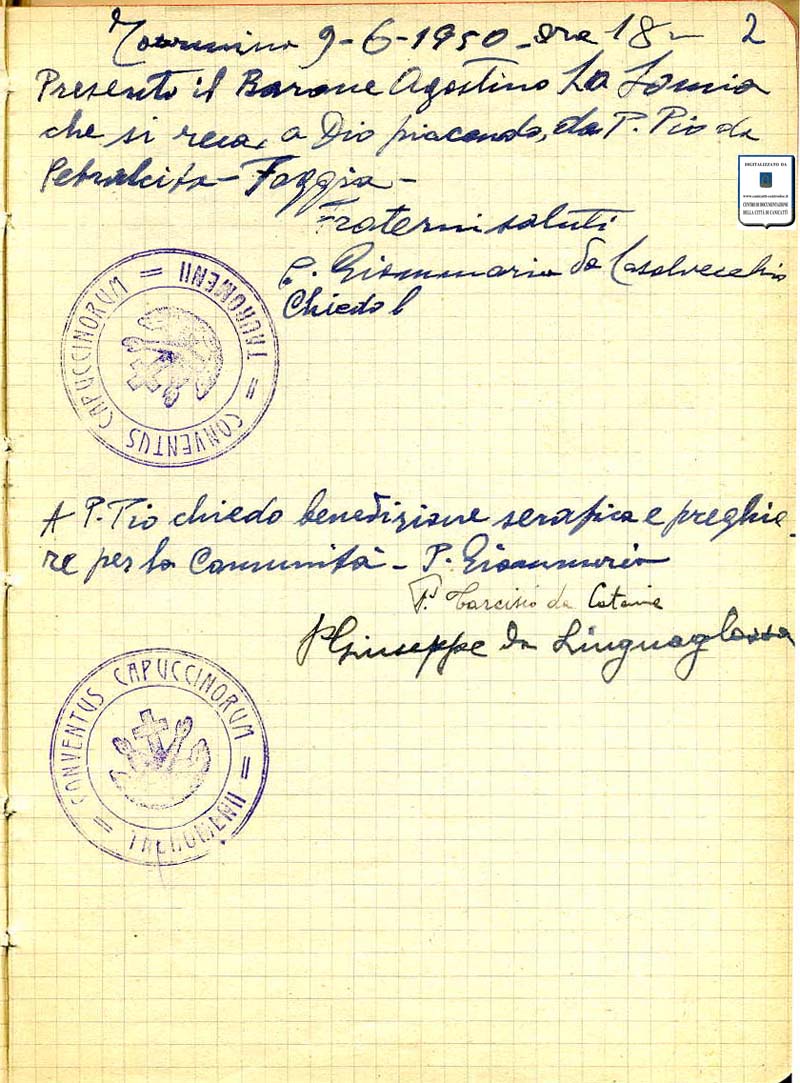 Taormina 9-6-1950 - ore 18 - 2
Presento il Barone Agostino La Lomia
che si reca, a Dio piacendo, da P. Pio da
Petralcita - Foggia -
Fraterni saluti
P. Giammaria da Casalvecchio
Chiedo b
= CONVENTUS CAPUCCINORUM = TAUROMENII
DIGITALIZZATO DA
CENTRO DI DOCUMENTAZIONE
DELLA CITTÀ DI CANICATTÌ
A P. Pio chiedo benedizione serafica e preghie-
re per la Comunità - P. Giammaria
P. Tarcisio da Catania
P Giuseppe da Linguaglossa
= CONVENTUS CAPUCCINORUM = TAUROMENII